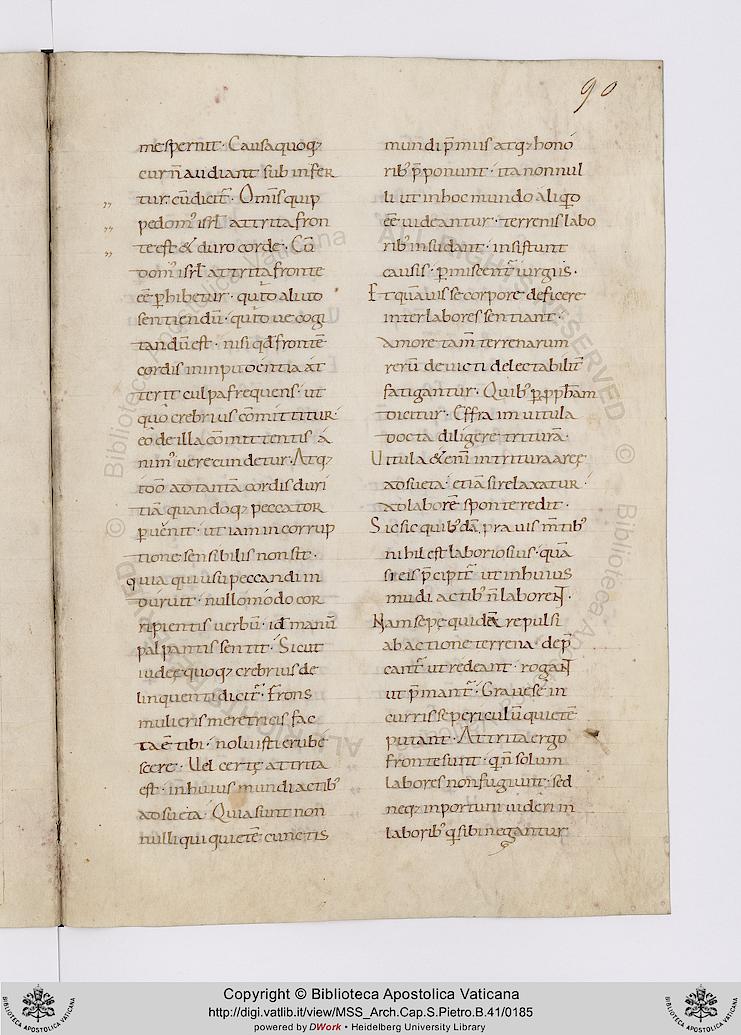 90
me spernit · Causa quoq;
cur n̄ audiant sub infer
tur· cū dicit᷑ · Om̄is quip
pe dom᷒ isrl̄ attrita fron
te est & duro corde · Cū
dom᷒ isrl̄ attrita fronte
eē p̱hibetur · quid aliud
sentiendū · quid ve cogi
tandū est · nisi qd̄ frontē
cordis in inpudentia at
terit culpa frequens · ut
quo crebrius cōmittitur·
eo de illa cōmittentis a
nim᷒ verecundetur · Atq;
ad tantā cordis duri
tiā quandoq; peccator
p̱uenit · ut iam incorrup
tione sensibilis non sit ·
quia qui usu peccandi in
duruit · nullo modo cor
ripientis verbū · id manū
palpantis sentit · Sicut
iudeę quoq; crebrius de
linquenti dicit᷑ · Frons
mulieris meretricis fac
ta ē tibi · noluisti erube
scere · Vel certe attrita
est · in huius mundi actib᷒
adsueta · Quia sunt non
nulli qui quietē cunctis
mundi p̄miis atq; hono
rib᷒ p̄ponunt · ita non nul
li ut in hoc mundo aliqd
eē uideantur · terrenis labo
rib᷒ insudant · insistunt
causis · p̱miscent᷑ iurgiis ·
Et quāuis se corpore deficere
inter labores sentiant ·
amore tam̄ terrenarum
rerū devicti delectabilit᷑
fatigantur · Quib᷒ p̱ pph̄am
dicitur · Effraim uitula
docta diligere trituram·
Vitula &eni in tritura areę
adsueta · etiā si relaxatur ·
ad laborē sponte redit ·
Sic sic quib᷒dā prauis mtib᷒
nihil est laboriosius · quā
si eis p̄cipit᷑ ut in huius
mudi actib᷒ n̄ laborent ·
Nam sepe quidē repulsi
ab actione terrena · dep̄
cant᷑ ut redeant · rogant
ut p̄mant᷑ · Grave sē in
curris se periculū quietē
putant · Attrita ergo
fronte sunt · q n̄ solum
labores non fugiunt · sed
neq; inportuni uideri in
laborib᷒ q sibi negantur
Copyright © Biblioteca Apostolica Vaticana
http://digi.vatlib.it/view/MSS_Arch.Cap.S.Pietro.B.41/0185
powered by DWork • Heidelberg University Library